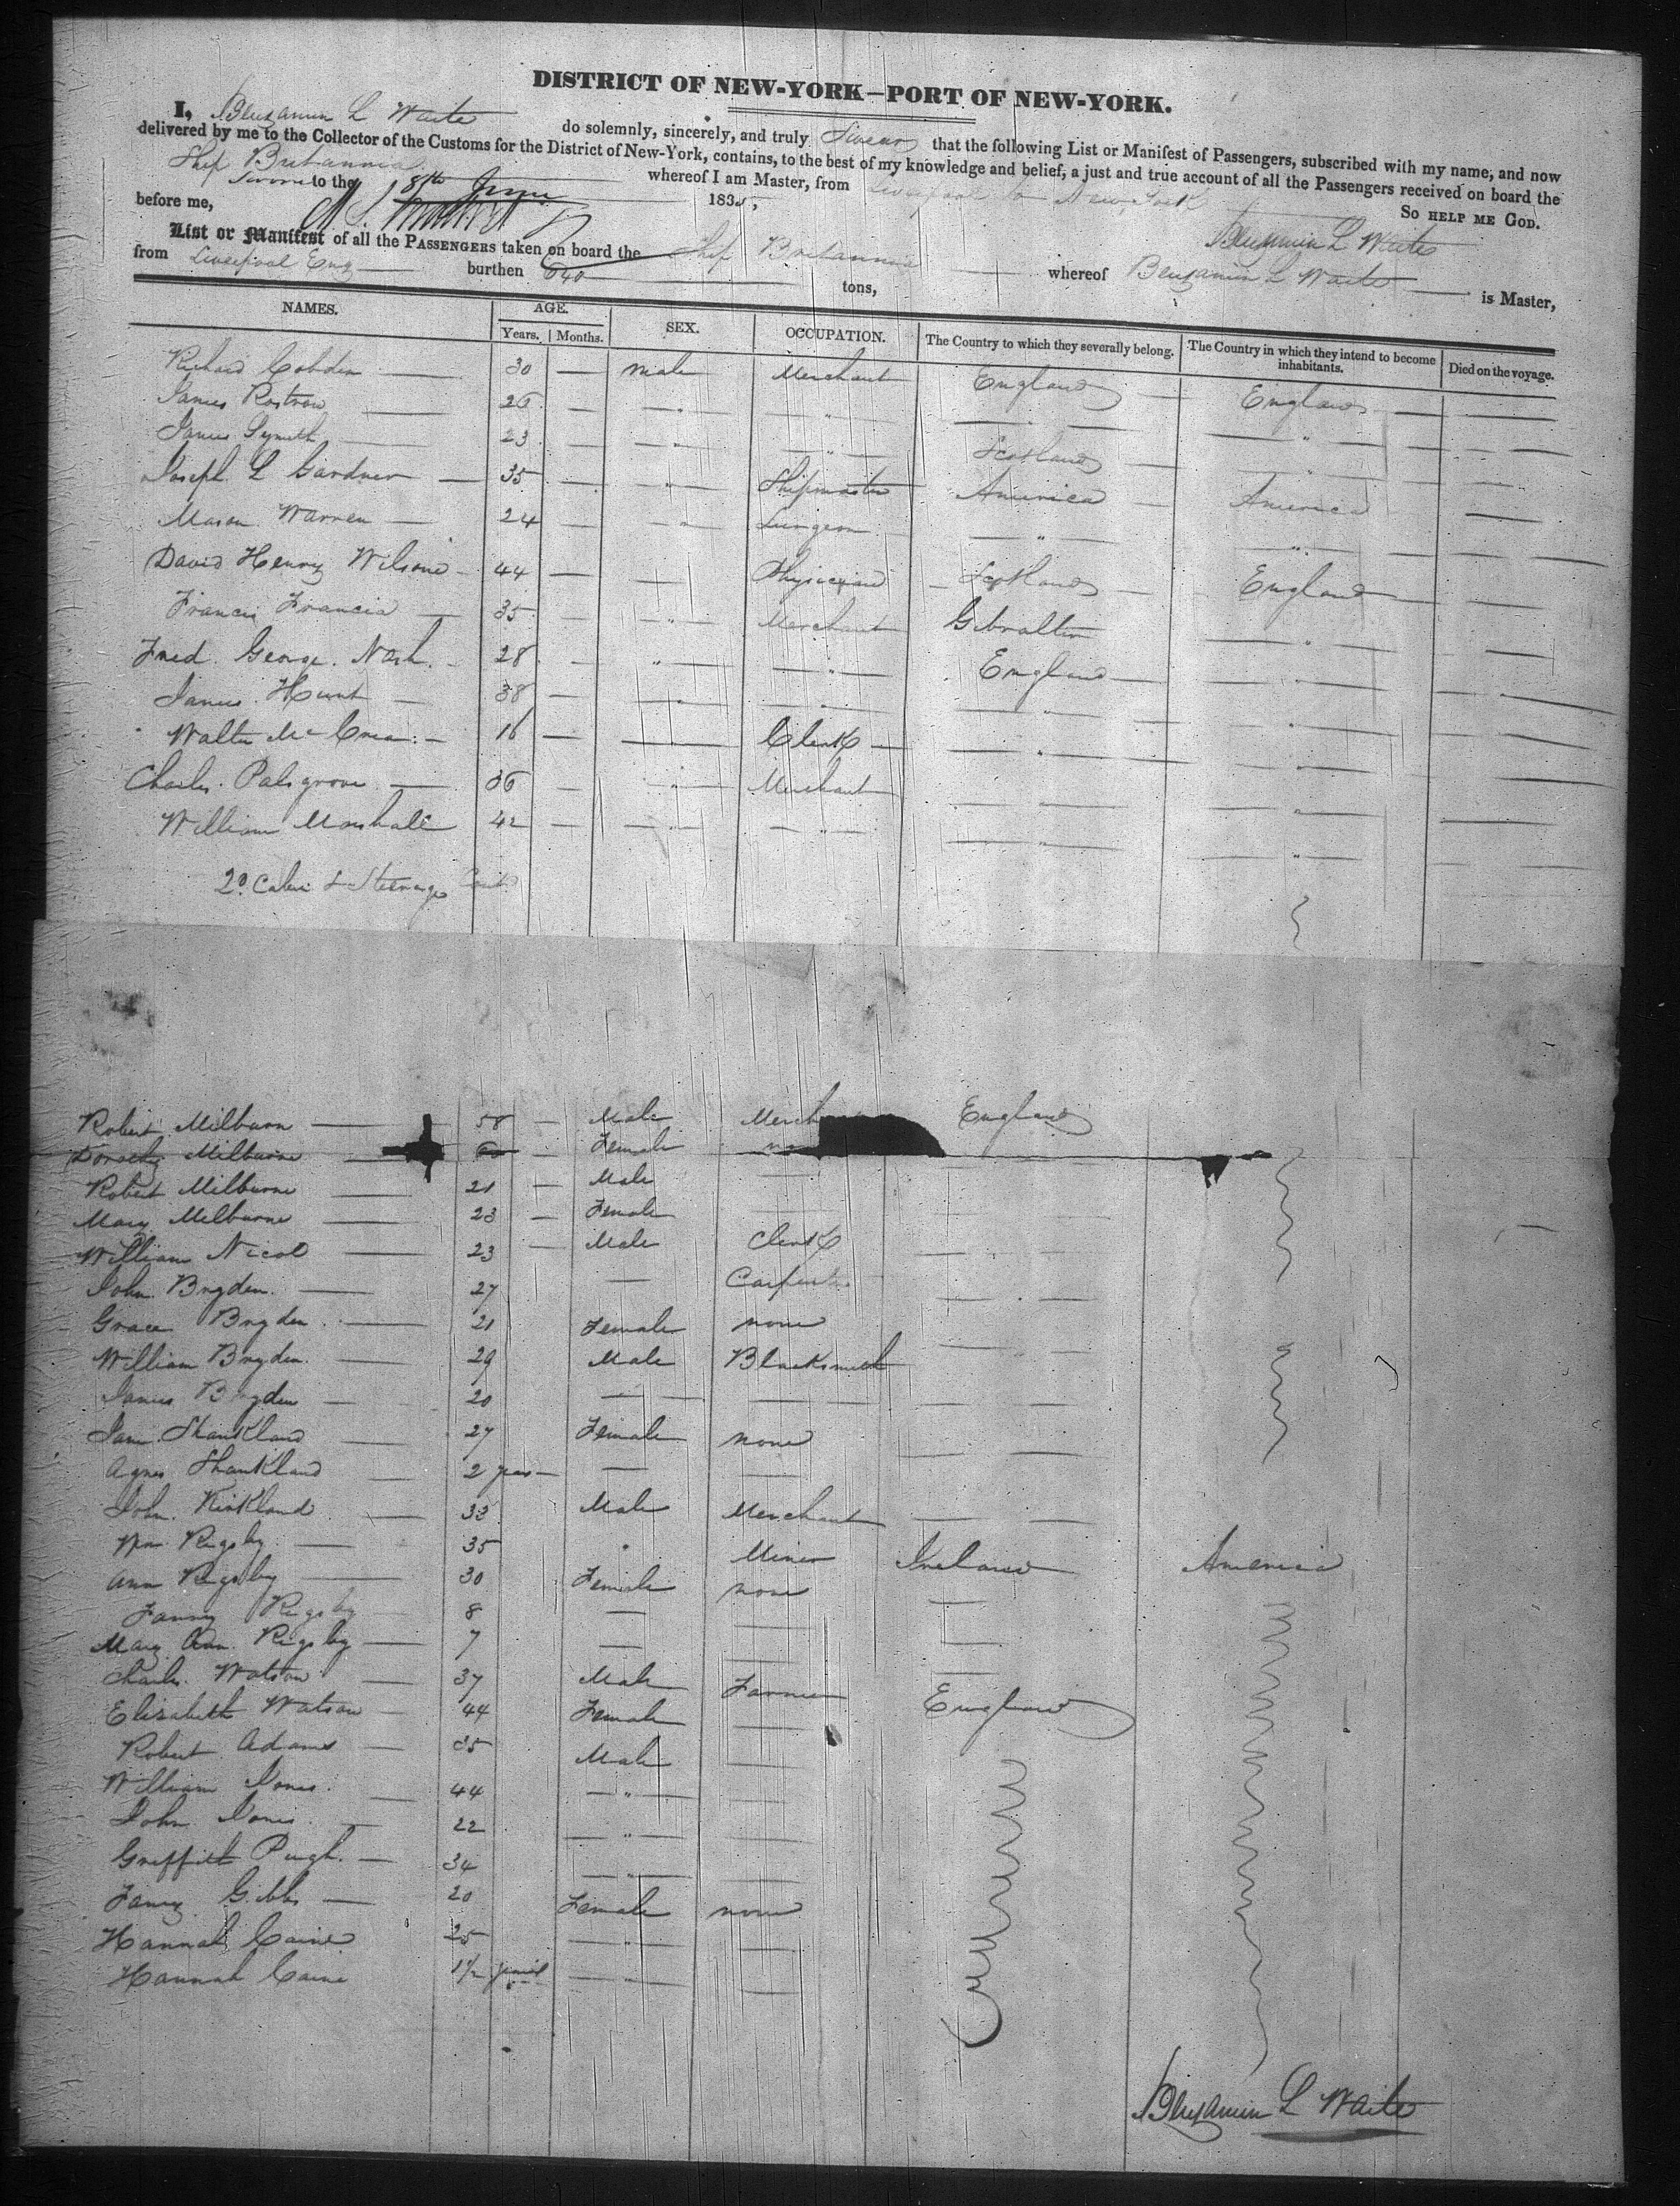 DISTRICT OF NEW-YORK—PORT OF NEW-YORK.
I, Benjamin L Waite do solemnly, sincerely, and truly Swear that the following List or Manifest of Passengers, subscribed with my name, and now
delivered by me to the Collector of the Customs for the District of New-York, contains, to the best of my knowledge and belief, a just and true account of all the Passengers received on board the
Ship Britannia whereof I am Master, from Liverpool to New York
Sworn to the 8th June 1835, So HELP ME GOD.
before me, Benjamin L Waite
List or Manifest of all the PASSENGERS taken on board the Ship Britannia whereof Benjamin L Waite is Master,
from Liverpool Eng burthen 640 tons,
NAMES. AGE. SEX. OCCUPATION. The Country to which they severally belong. The Country in which they intend to become inhabitants. Died on the voyage.
Years. Months.
Richard Cobden — 30 — male Merchant England — England — —
James Rostron — 26 — " " " "
James Symith — 23 — " " Scotland — "
Joseph L Gardner — 35 — " Shipmaster America — America —
Mason Warren — 24 — " Surgeon " "
David Henry Wilsone — 44 — — Physician — Scotland — England — —
Francis Francia — 35 — " Merchant Gibralter "
Fred. George. Nash. — 28 — " " England — "
James. Hunt — 38 — " " " "
Walter McCrea — 16 — — Clerk — " "
Charles. Palsgrove — 36 — " Merchant "
William Marshall 42 — " " "
2d Cabin & Steerage
Robert Milburn — 58 — Male Merch England
Dorothy Milburne — Female no
Robert Milburne — 21 — Male
Mary Milburne — 23 — Female
William Nicol — 23 — Male Clerk
John. Bryden. — 27 — Carpenter
Grace Bryden. — 21 Female none
William Bryden. — 29 Male Blacksmith
James Bryden — 20 — —
Jane Shankland — 27 Female none
Agnes Shankland — 2 years — — —
John. Kirkland — 33 Male Merchant
Wm Rigsby — 35 " Miner Ireland America
Ann Rigsby — 30 Female none
Fanny Rigsby — 8 — —
Mary Ann. Rigsby — 7 — —
Charles. Watson — 37 Male Farmer England
Elizabeth Watson — 44 Female —
Robert Adams — 35 Male —
William Jones. — 44 — " — —
John Jones. — 22 — " — —
Griffith Pugh. — 34 — " — —
Fanny Gibbs — 20 Female none
Hannah Caine 25 — " — —
Hannah Caine 1½ years — — —
Benjamin L Waite